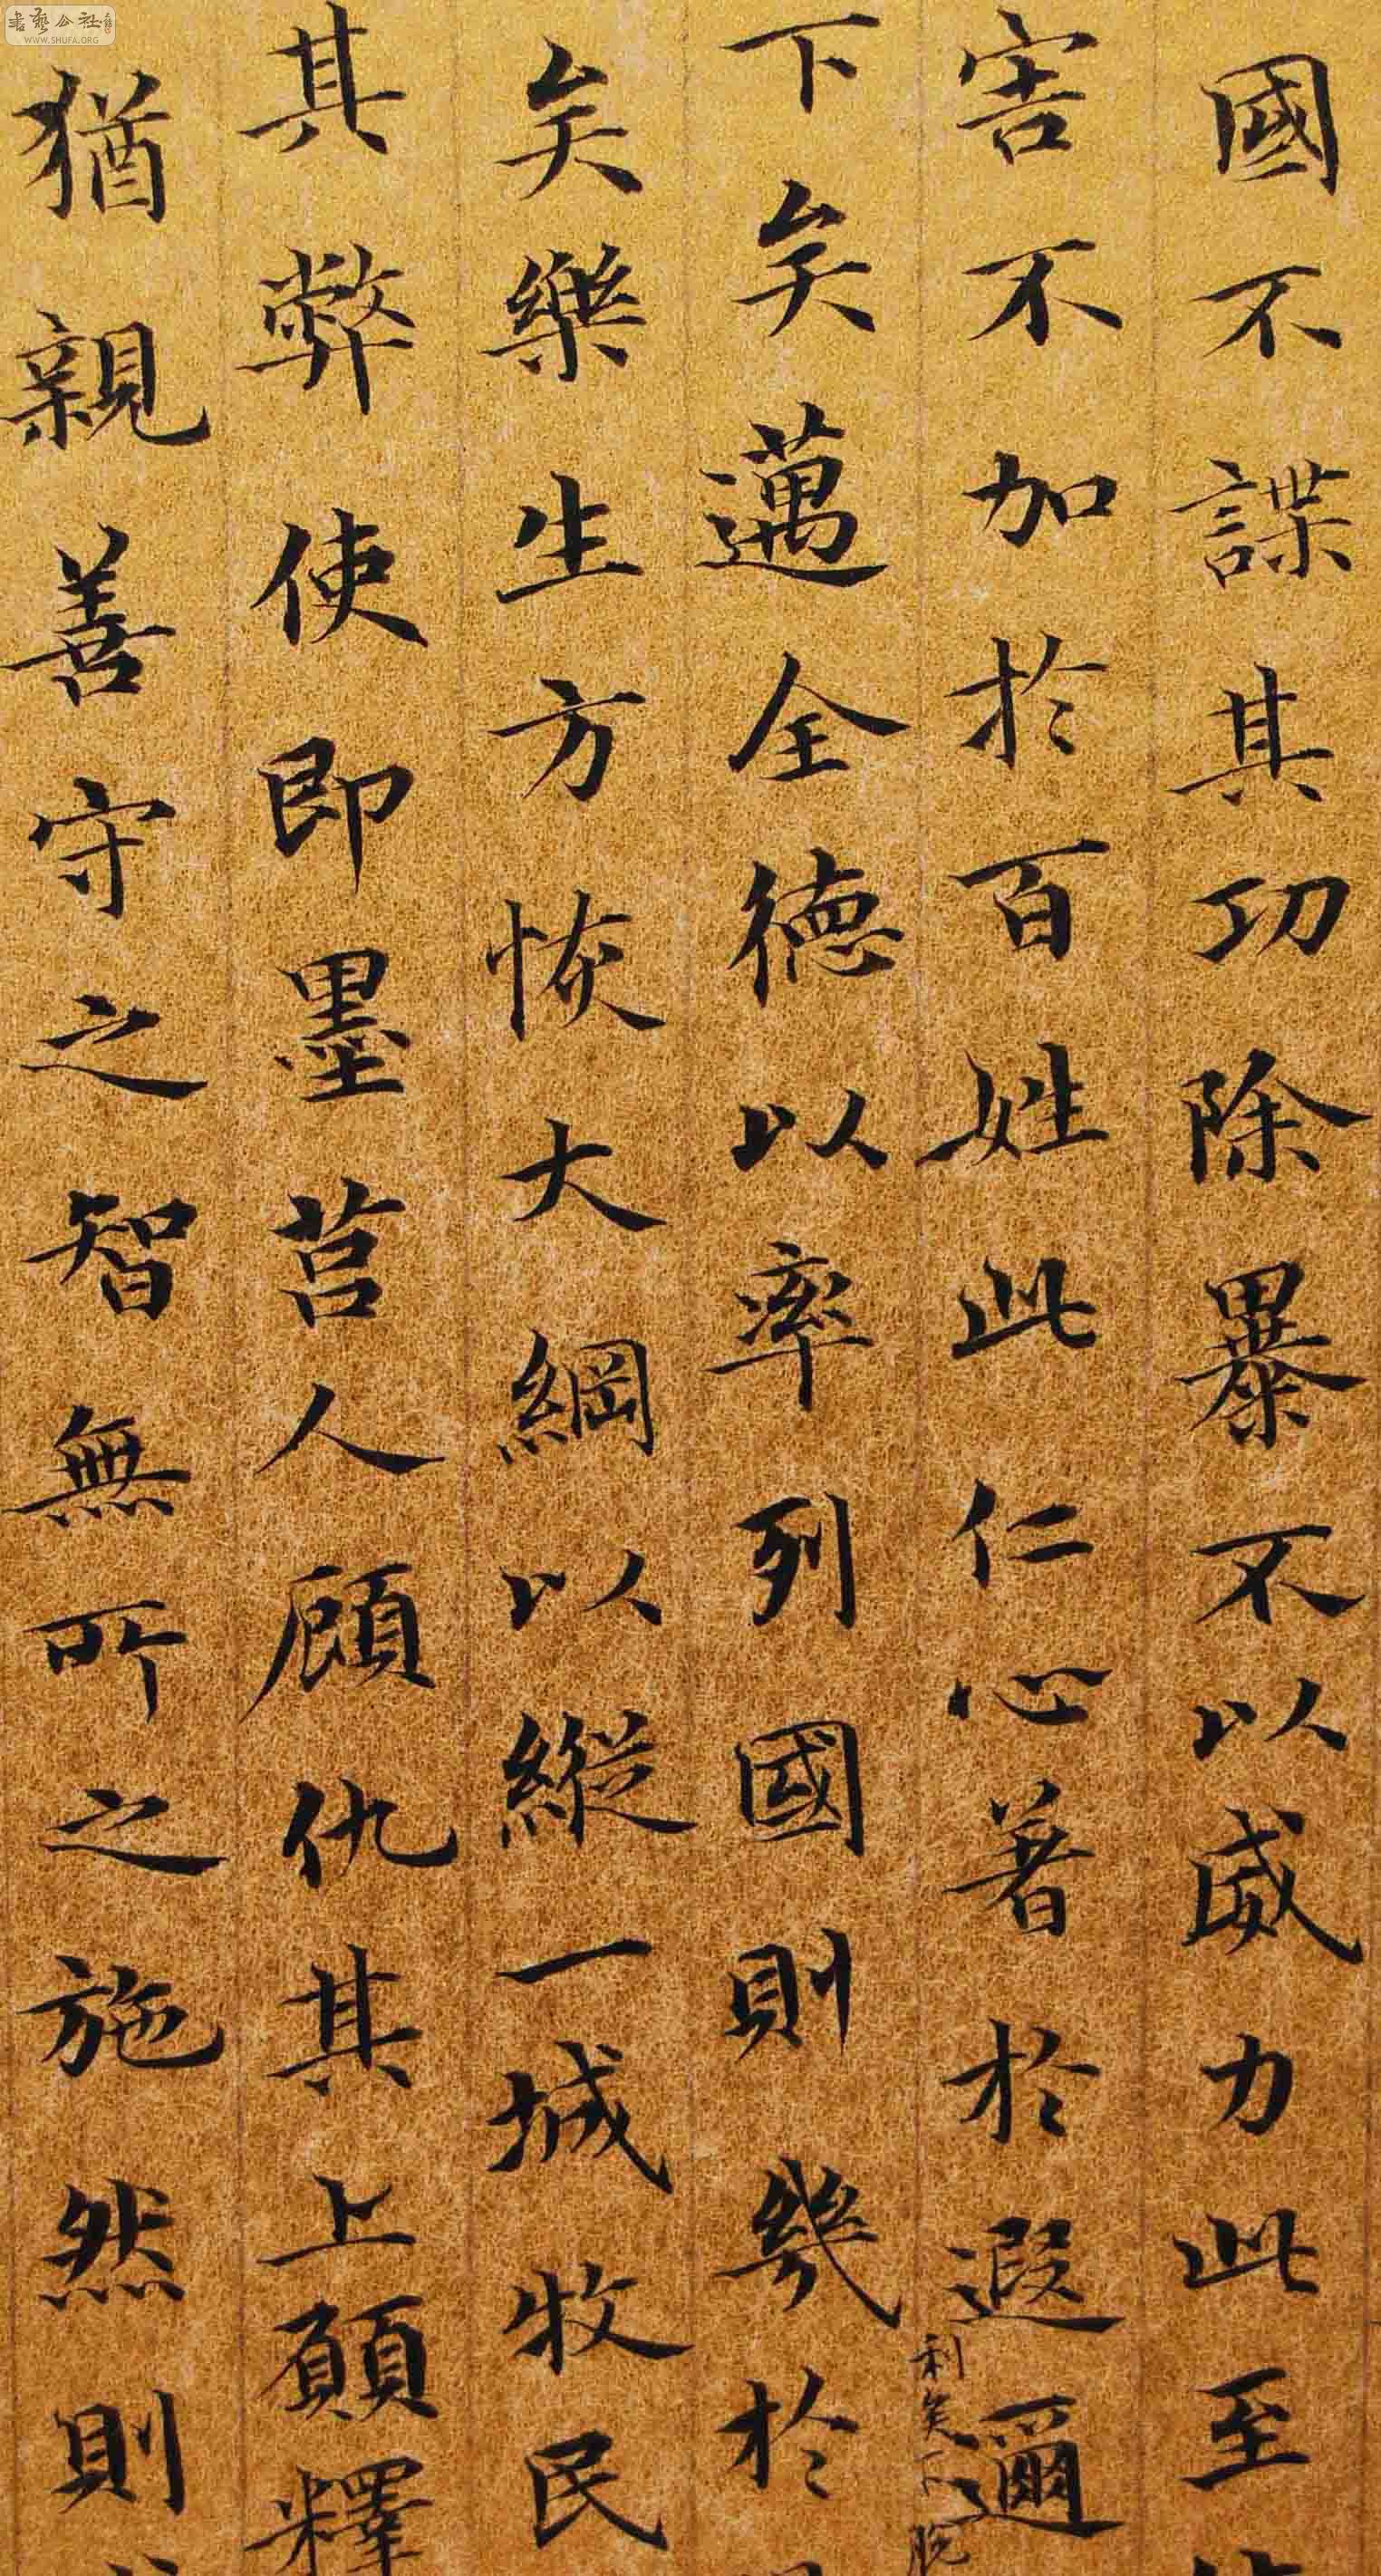 國不謀其功除暴不以威力此至
害不加於百姓此仁心著於遐邇
利矣下
下矣邁全德以率列國則幾於
矣樂生方恢大綱以縱一城牧民
其弊使即墨莒人顧仇其上願釋
猶親善守之智無所之施然則
書藝公社
WWW.SHUFA.ORG